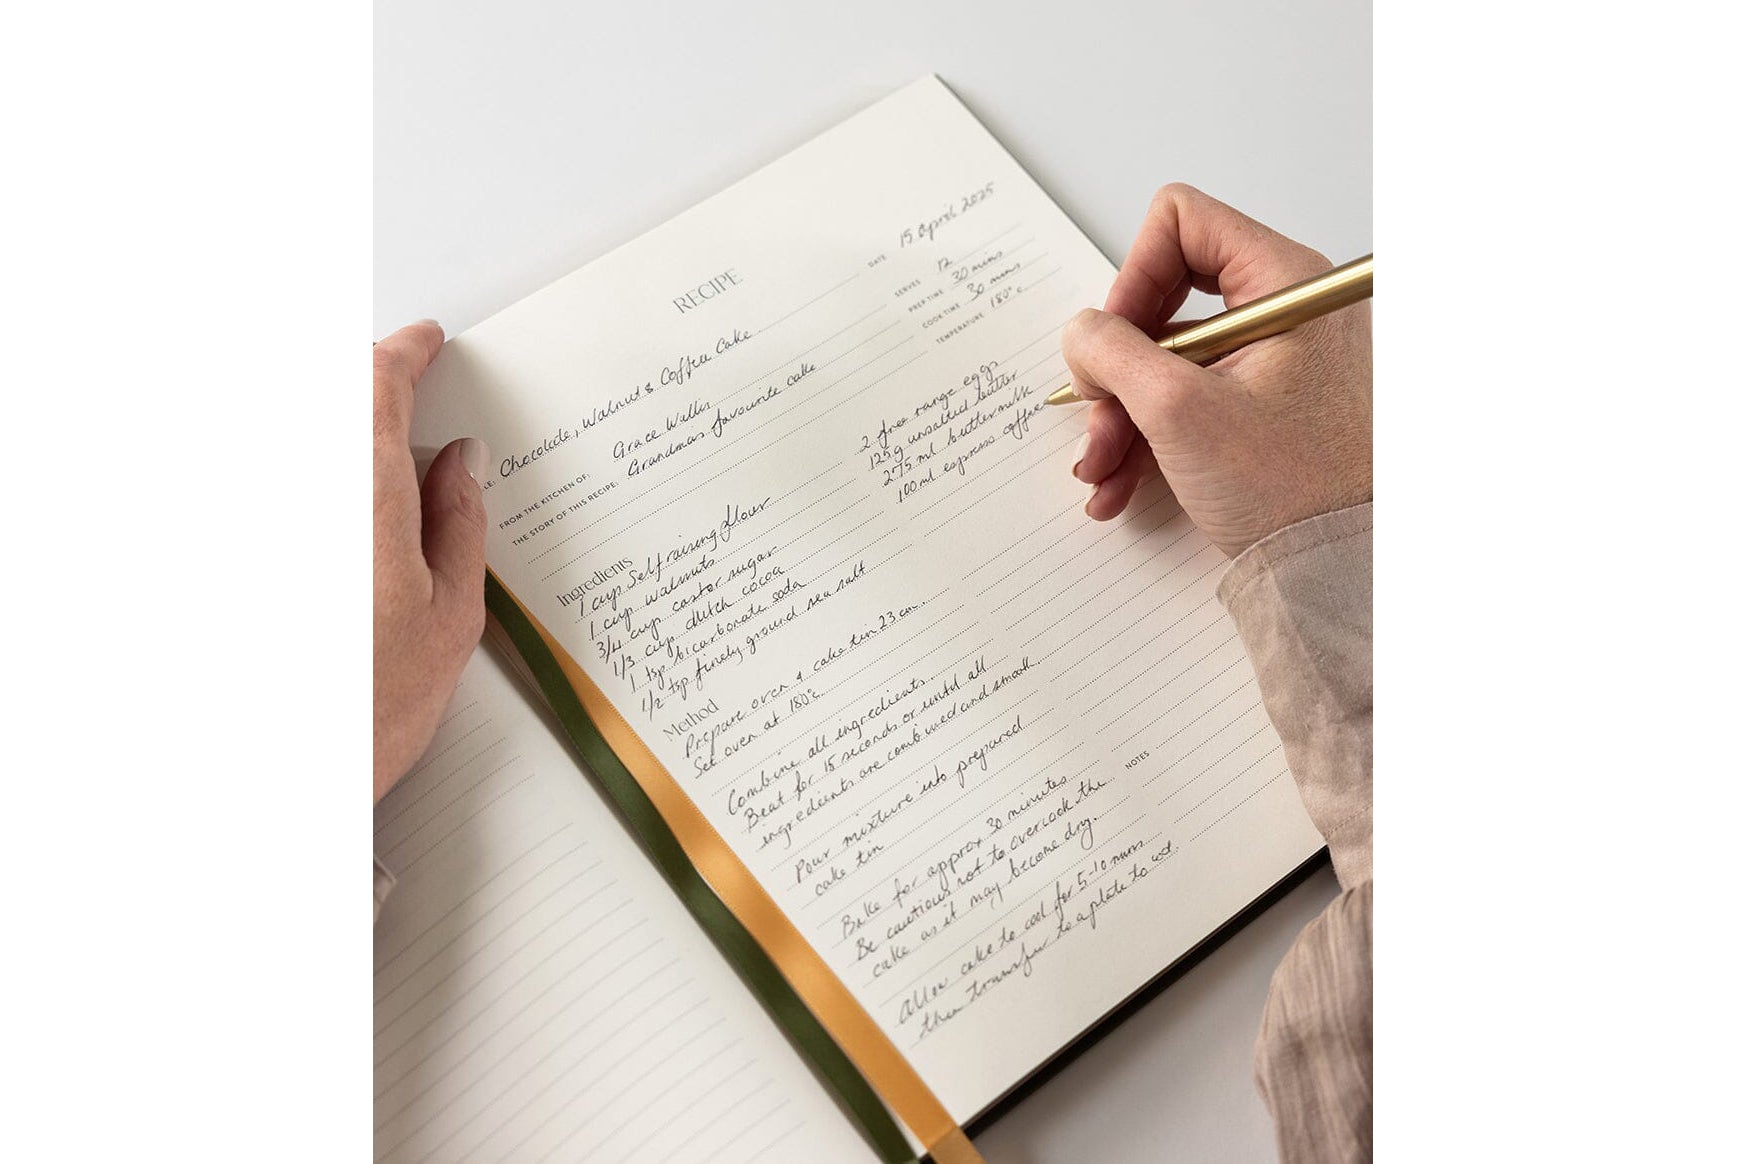 RECIPE
DATE 15 April 2025
LE: Chocolate, Walnut & Coffee Cake
SERVES 12
FROM THE KITCHEN OF: Grace Wallis
PREP TIME 30 mins
THE STORY OF THIS RECIPE: Grandmas favourite cake
COOK TIME 30 mins
TEMPERATURE 180°c
Ingredients
1 cup Self raising flour
1 cup walnuts
3/4 cup castor sugar
1/3 cup dutch cocoa
1 tsp bicarbonate soda
1/2 tsp finely ground sea salt
2 free range eggs
125g unsalted butter
275 ml buttermilk
100ml espresso coffee
Method
Prepare oven & cake tin 23 cm.
Set oven at 180°c
Combine all ingredients.
Beat for 15 seconds or until all
ingredients are combined and smooth.
Pour mixture into prepared
cake tin
Bake for approx 30 minutes
Be cautious not to overcook the
cake as it may become dry.
Allow cake to cool for 5-10 mins
then transfer to a plate to
NOTES